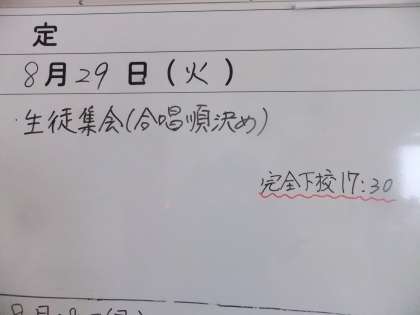 定
8月29日(火)
・生徒集会(合唱順決め)
完全下校17:30